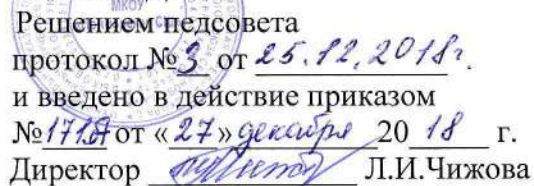 МКОУ
Решением педсовета
протокол №3 от 25.12.2018г.
и введено в действие приказом
от «27» декабря 2018 г.
Директор Л.И.Чижова